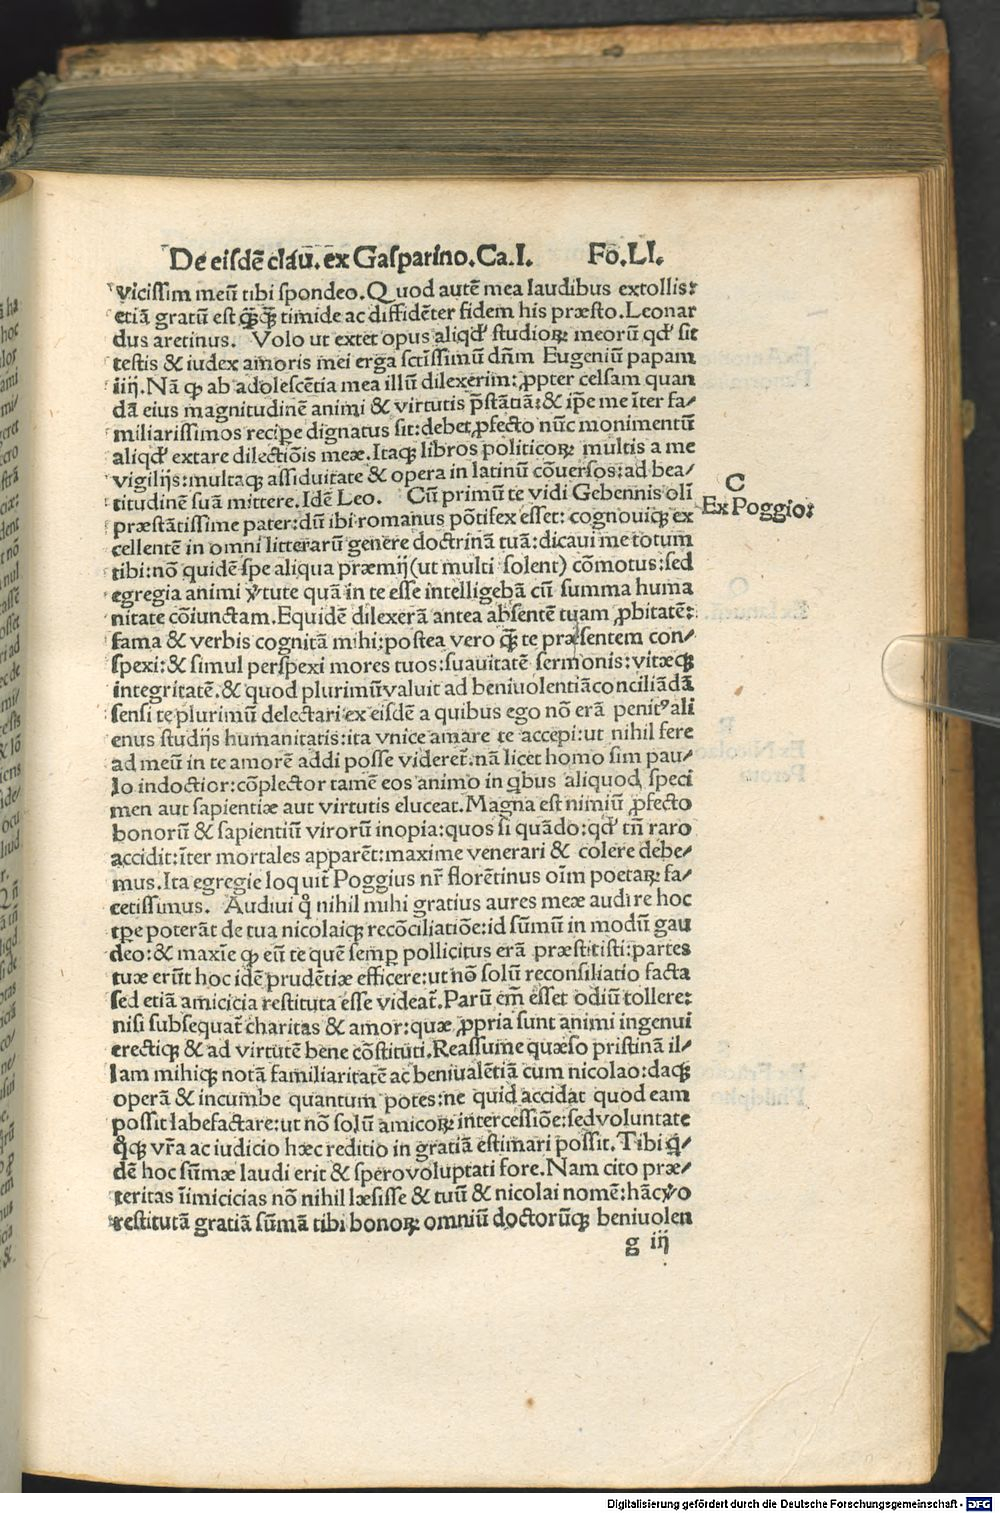 De eisdē clau᷑. ex Gasparino. Ca. I. Fo. LI.
vicissim meū tibi spondeo. Quod autē mea laudibus extollis:
etiā gratū est q̄q̄ timide ac diffidēter fidem his præsto. Leonar
dus aretinus. Volo ut extet opus aliqd' studioꝝ meorū qd' sit
testis & iudex amoris mei erga sctīssimū dn̄m Eugeniū papam
iiij. Nā ꝙ ab adolescētia mea illū dilexerim: ꝓpter celsam quan
dā eius magnitudinē animi & virtutis p̄stātiā: & ip̄e me īter fa⸗
miliarissimos recip̱e dignatus sit: debet ꝓfecto nūc monimentū
aliqd' extare dilectiōis meæ. Itaqꝫ libros politicoꝝ multis a me
vigilijs: multaqꝫ assiduitate & opera in latinū cōuersos: ad bea⸗
titudinē suā mittere. Idē Leo. Cū primū te vidi Gebennis oli
præstātissime pater: dū ibi romanus pōtifex esset: cognouiqꝫ ex
cellentē in omni litterarū genere doctrinā tuā: dicaui me totum
tibi: nō quidē spe aliqua præmij (ut multi solent) cōmotus: sed
egregia animi v̓tute quā in te esse intelligebā cū summa huma
nitate cōiunctam. Equidē dilexerā antea absentē tuam ꝓbitatē:
fama & verbis cognitā mihi: postea vero q̄ te præsentem con⸗
spexi: & simul perspexi mores tuos: suauitatē sermonis: vitæqꝫ
integritatē. & quod plurimū valuit ad beniuolentiā conciliādā
sensi te plurimū delectari ex eisdē a quibus ego nō erā penitꝰ ali
enus studijs humanitatis: ita vnice amare te accepi: ut nihil fere
ad meū in te amorē addi posse videret᷑. nā licet homo sim pau⸗
lo indoctior: cōplector tamē eos animo in qͥbus aliquod speci
men aut sapientiæ aut virtutis eluceat. Magna est nimiū ꝓfecto
bonorū & sapientiū virorū inopia: quos si quādo: qd' tn̄ raro
accidit: īter mortales apparēt: maxime venerari & colere debe⸗
mus. Ita egregie loquit᷑ Poggius nr̄ florētinus oīm poetaꝝ fa⸗
cetissimus. Audiui qͥ nihil mihi gratius aures meæ audire hoc
tp̄e poterāt de tua nicolaiqꝫ recōciliatiōe: id sūmū in modū gau
deo: & maxīe ꝙ eū te quē semꝑ pollicitus erā præstitisti: partes
tuæ erūt hoc idē prudētiæ efficere: ut nō solū reconsiliatio facta
sed etiā amicicia restituta esse videat᷑. Parū em̄ esset odiū tollere:
nisi subsequat᷑ charitas & amor: quæ ꝓpria sunt animi ingenui
erectiqꝫ & ad virtutē bene cōstituti. Reassume quæso pristinā il⸗
lam mihiqꝫ notā familiaritatē ac beniualētiā cum nicolao: daqꝫ
operā & incumbe quantum potes: ne quid accidat quod eam
possit labefactare: ut nō solū amicoꝝ intercessiōe: sed voluntate
qͦqꝫ vr̄a ac iudicio hæc reditio in gratiā estimari possit. Tibi qͥ⸗
dē hoc sūmæ laudi erit & spero voluptati fore. Nam cito præ⸗
teritas īimicicias nō nihil læsisse & tuū & nicolai nomē: hāc v̓o
restitutā gratiā sūmā tibi bonoꝝ omniū doctorūqꝫ beniuolen
g iij
C
Ex Poggio:
Digitalisierung gefördert durch die Deutsche Forschungsgemeinschaft - DFG